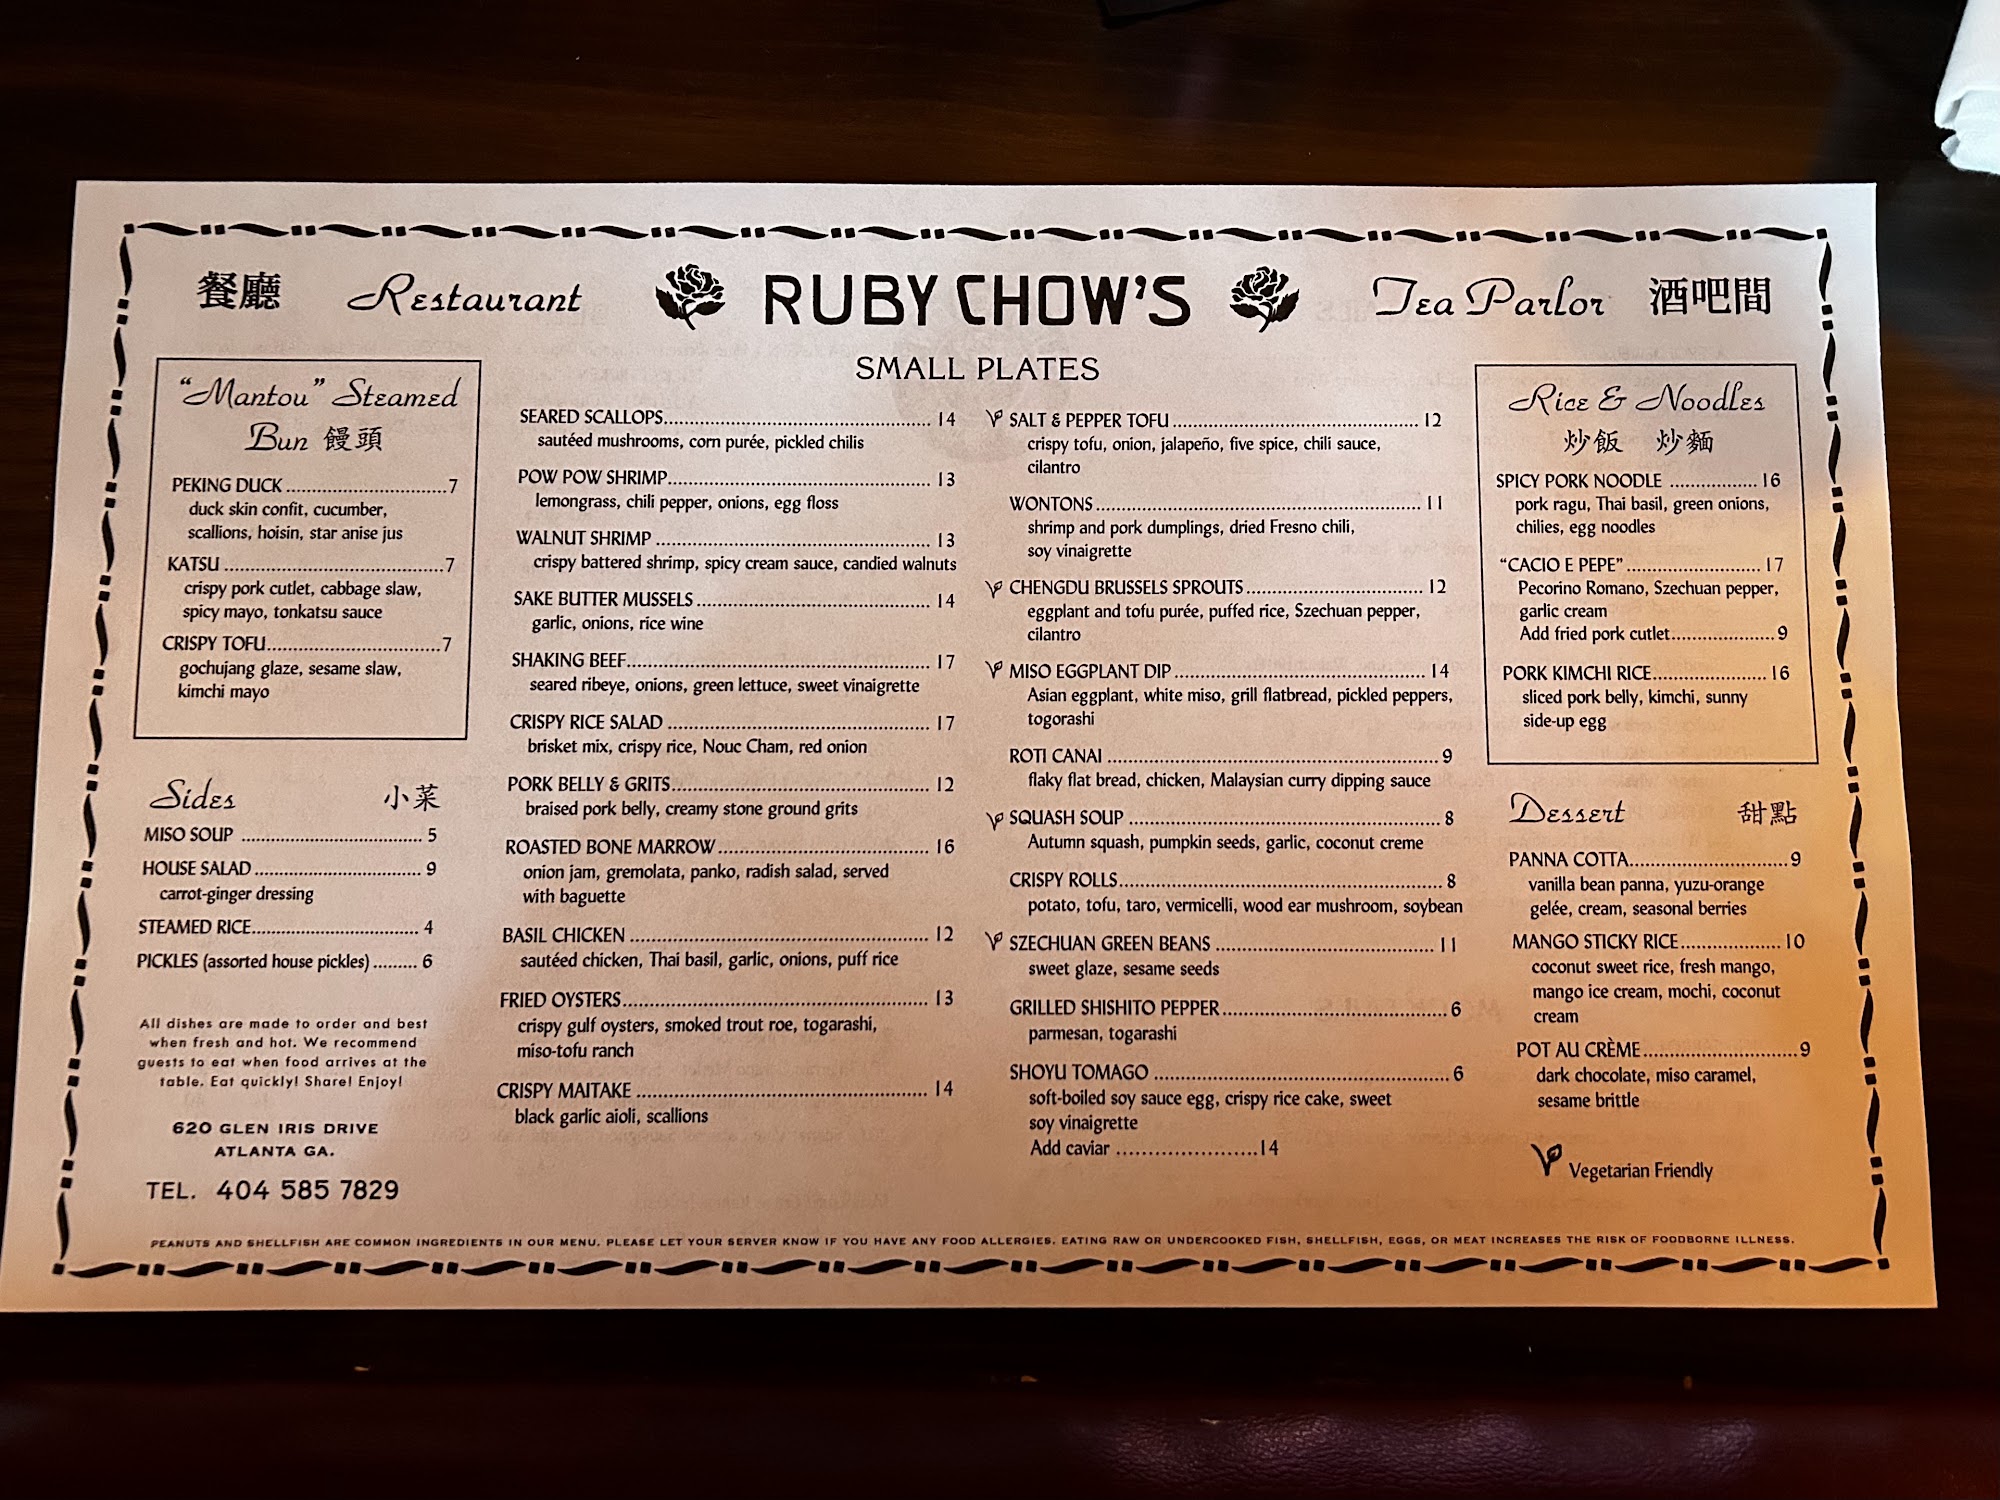 餐廳 Restaurant RUBY CHOW'S Tea Parlor 酒吧間
SMALL PLATES
“Mantou” Steamed
Bun 饅頭
PEKING DUCK 7
duck skin confit, cucumber,
scallions, hoisin, star anise jus
KATSU 7
crispy pork cutlet, cabbage slaw,
spicy mayo, tonkatsu sauce
CRISPY TOFU 7
gochujang glaze, sesame slaw,
kimchi mayo
Sides 小菜
MISO SOUP 5
HOUSE SALAD 9
carrot-ginger dressing
STEAMED RICE 4
PICKLES (assorted house pickles) 6
All dishes are made to order and best
when fresh and hot. We recommend
guests to eat when food arrives at the
table. Eat quickly! Share! Enjoy!
620 GLEN IRIS DRIVE
ATLANTA GA.
TEL. 404 585 7829
SEARED SCALLOPS 14
sautéed mushrooms, corn purée, pickled chilis
POW POW SHRIMP 13
lemongrass, chili pepper, onions, egg floss
WALNUT SHRIMP 13
crispy battered shrimp, spicy cream sauce, candied walnuts
SAKE BUTTER MUSSELS 14
garlic, onions, rice wine
SHAKING BEEF 17
seared ribeye, onions, green lettuce, sweet vinaigrette
CRISPY RICE SALAD 17
brisket mix, crispy rice, Nouc Cham, red onion
PORK BELLY & GRITS 12
braised pork belly, creamy stone ground grits
ROASTED BONE MARROW 16
onion jam, gremolata, panko, radish salad, served
with baguette
BASIL CHICKEN 12
sautéed chicken, Thai basil, garlic, onions, puff rice
FRIED OYSTERS 13
crispy gulf oysters, smoked trout roe, togarashi,
miso-tofu ranch
CRISPY MAITAKE 14
black garlic aioli, scallions
SALT & PEPPER TOFU 12
crispy tofu, onion, jalapeño, five spice, chili sauce,
cilantro
WONTONS 11
shrimp and pork dumplings, dried Fresno chili,
soy vinaigrette
CHENGDU BRUSSELS SPROUTS 12
eggplant and tofu purée, puffed rice, Szechuan pepper,
cilantro
MISO EGGPLANT DIP 14
Asian eggplant, white miso, grill flatbread, pickled peppers,
togorashi
ROTI CANAI 9
flaky flat bread, chicken, Malaysian curry dipping sauce
SQUASH SOUP 8
Autumn squash, pumpkin seeds, garlic, coconut creme
CRISPY ROLLS 8
potato, tofu, taro, vermicelli, wood ear mushroom, soybean
SZECHUAN GREEN BEANS 11
sweet glaze, sesame seeds
GRILLED SHISHITO PEPPER 6
parmesan, togarashi
SHOYU TOMAGO 6
soft-boiled soy sauce egg, crispy rice cake, sweet
soy vinaigrette
Add caviar 14
Rice & Noodles
炒飯 炒麵
SPICY PORK NOODLE 16
pork ragu, Thai basil, green onions,
chilies, egg noodles
“CACIO E PEPE” 17
Pecorino Romano, Szechuan pepper,
garlic cream
Add fried pork cutlet 9
PORK KIMCHI RICE 16
sliced pork belly, kimchi, sunny
side-up egg
Dessert 甜點
PANNA COTTA 9
vanilla bean panna, yuzu-orange
gelée, cream, seasonal berries
MANGO STICKY RICE 10
coconut sweet rice, fresh mango,
mango ice cream, mochi, coconut
cream
POT AU CRÈME 9
dark chocolate, miso caramel,
sesame brittle
Vegetarian Friendly
PEANUTS AND SHELLFISH ARE COMMON INGREDIENTS IN OUR MENU. PLEASE LET YOUR SERVER KNOW IF YOU HAVE ANY FOOD ALLERGIES. EATING RAW OR UNDERCOOKED FISH, SHELLFISH, EGGS, OR MEAT INCREASES THE RISK OF FOODBORNE ILLNESS.